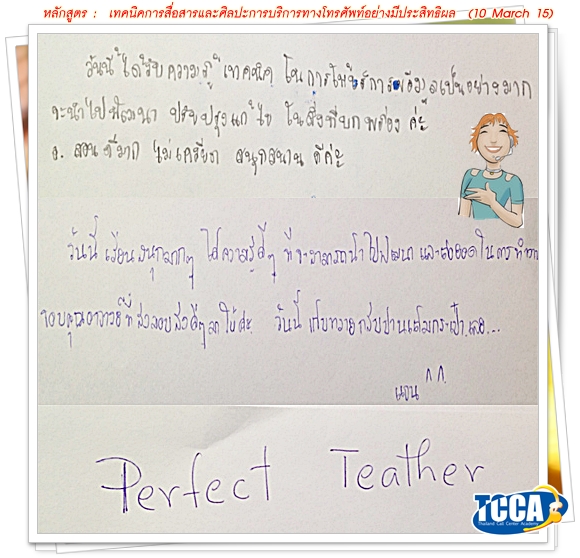 หลักสูตร : เทคนิคการสื่อสารและศิลปะการบริการทางโทรศัพท์อย่างมีประสิทธิผล (10 March 15)
วันนี้ ได้รับความรู้ เทคนิค ในการให้บริการ เป็นอย่างมาก
จะนำไปพัฒนา ปรับปรุงแก้ไข ในสิ่งที่บกพร่อง ค่ะ
อ. สอนดีมาก ไม่เครียด สนุกสนาน ดีค่ะ
วันนี้ เรียนสนุกมากๆ ได้ความรู้ดีๆ ที่จะสามารถนำไปพัฒนา และต่อยอดในการทำงาน
ขอบคุณอาจารย์ที่ส่งมอบสิ่งดีๆมาให้ค่ะ วันนี้ เก็บกลับบ้านเต็มกระเป๋าเลย...
^^
Perfect Teather
TCCA
Thailand Call Center Academy